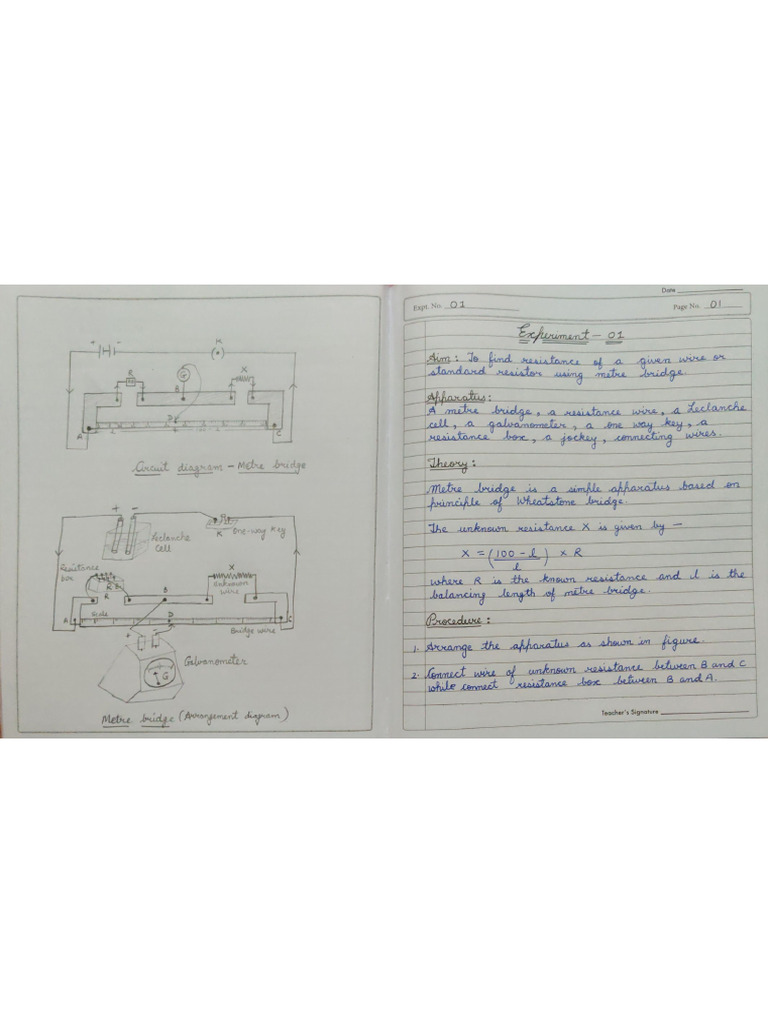 + -
K
R
G
X
B
D
A
C
Circuit diagram - Metre bridge
+ -
Leclanche
cell
K
One-way Key
Resistance
box
R
X
Unknown
wire
B
A
Scale
D
C
Bridge wire
+ -
G
Galvanometer
Metre bridge (Arrangement diagram)
Date
Expt. No. 01
Page No. 01
Experiment - 01
Aim : To find resistance of a given wire or
standard resistor using metre bridge.
Apparatus :
A metre bridge, a resistance wire, a Leclanche
cell, a galvanometer, a one way key, a
resistance box, a jockey, connecting wires.
Theory :
Metre bridge is a simple apparatus based on
principle of Wheatstone bridge.
The unknown resistance X is given by —
X = (100 - l / l) × R
where R is the known resistance and l is the
balancing length of metre bridge.
Procedure :
1. Arrange the apparatus as shown in figure.
2. Connect wire of unknown resistance between B and C
while connect resistance box between B and A.
Teacher's Signature